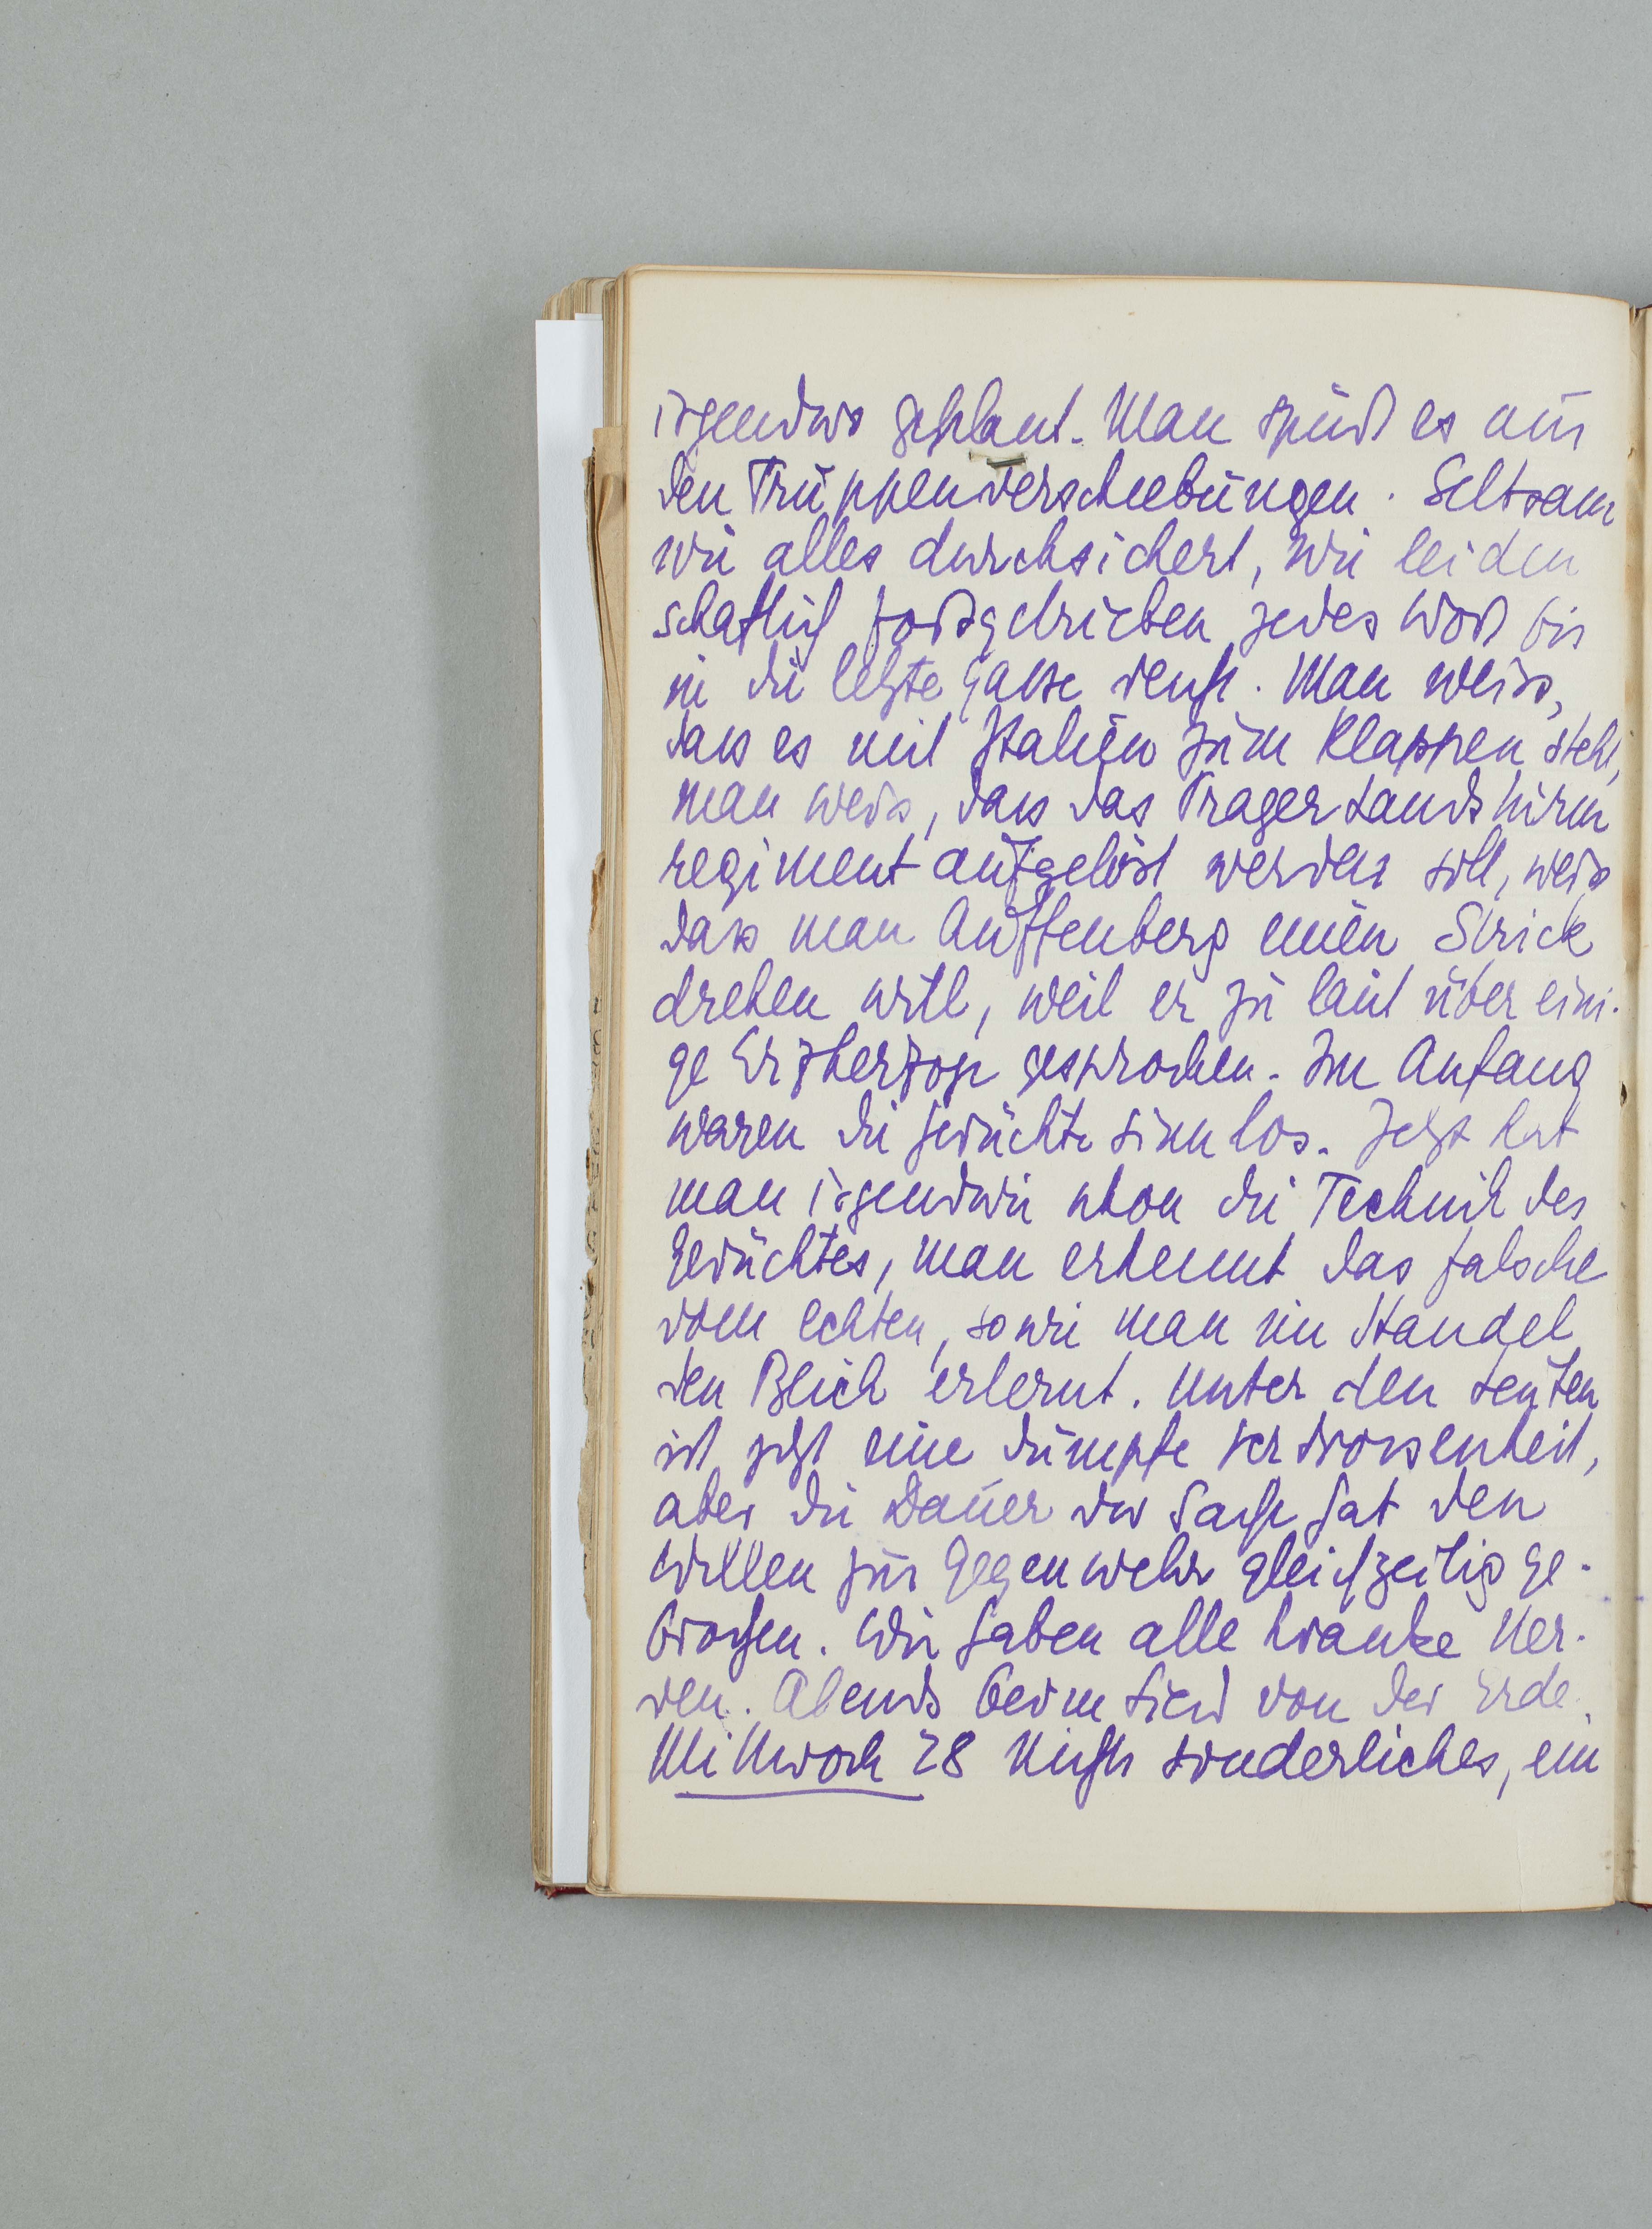 irgendwo geplant. Man spürt es aus
den Truppenverschiebungen. Seltsam
wie alles durchsickert, wie leiden
schaftlich fortgetrieben jedes Wort bis
in die letzte Gasse rennt. Man weiss,
dass es mit Italien zum Klappen steht,
man weiss, dass das Prager Landsturm
regiment aufgelöst werden soll, weiss
dass man Auffenberg einen Strick
drehen will, weil er zu laut über eini-
ge Erzherzoge gesprochen. Im Anfang
waren die Gerüchte sinnlos. Jetzt hat
man irgendwie schon die Technik des
Gerüchtes, man erkennt das falsche
vom echten, sowie man im Handel
den Blick erlernt. Unter den Leuten
ist jetzt eine dumpfe Verdrossenheit,
aber die Dauer der Sache hat den
Willen zur Gegenwehr gleichzeitig ge-
brochen. Wir haben alle kranke Ner-
ven. Abends beim Lied von der Erde.
Mittwoch 28 Nichts sonderliches, ein